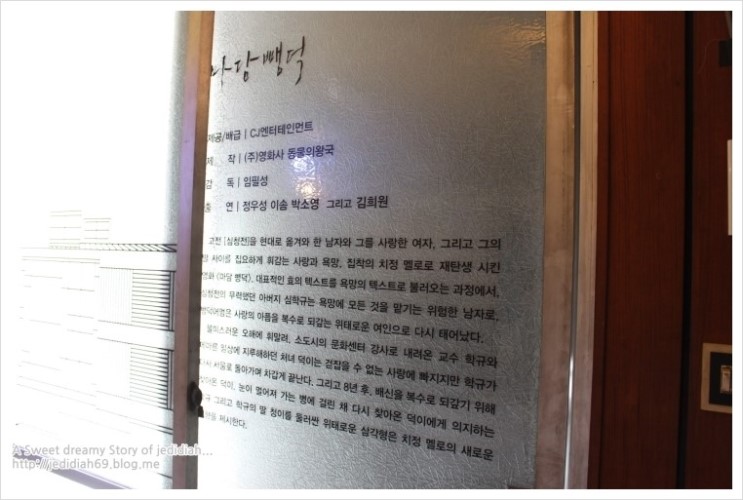 마담뺑덕
제공/배급 | CJ엔터테인먼트
제 작 | (주)영화사 동물의왕국
감 독 | 임필성
출 연 | 정우성 이솜 박소영 그리고 김희원
고전 [심청전]을 현대로 옮겨와 한 남자와 그를 사랑한 여자, 그리고 그의
딸 사이를 집요하게 휘감는 사랑과 욕망, 집착의 치정 멜로로 재탄생 시킨
영화 (마담 뺑덕). 대표적인 효의 텍스트를 욕망의 텍스트로 불러오는 과정에서,
심청전의 무력했던 아버지 심학규는 욕망에 모든 것을 맡기는 위험한 남자로,
뺑덕어멈은 사랑의 아픔을 복수로 되갚는 위태로운 여인으로 다시 태어났다.
불미스러운 오해에 휘말려, 소도시의 문화센터 강사로 내려온 교수 학규와
일상에 지루해하던 처녀 덕이는 걷잡을 수 없는 사랑에 빠지지만 학규가
다시 서울로 돌아가며 차갑게 끝난다. 그리고 8년 후, 배신을 복수로 되갚기 위해
찾아온 덕이, 눈이 멀어져 가는 병에 걸린 채 다시 찾아온 덕이에게 의지하는
학규 그리고 학규의 딸 청이를 둘러싼 위태로운 삼각형은 치정 멜로의 새로운
제시한다.
A Sweet dreamy Story of jedidiah...
http://jedidiah69.blog.me